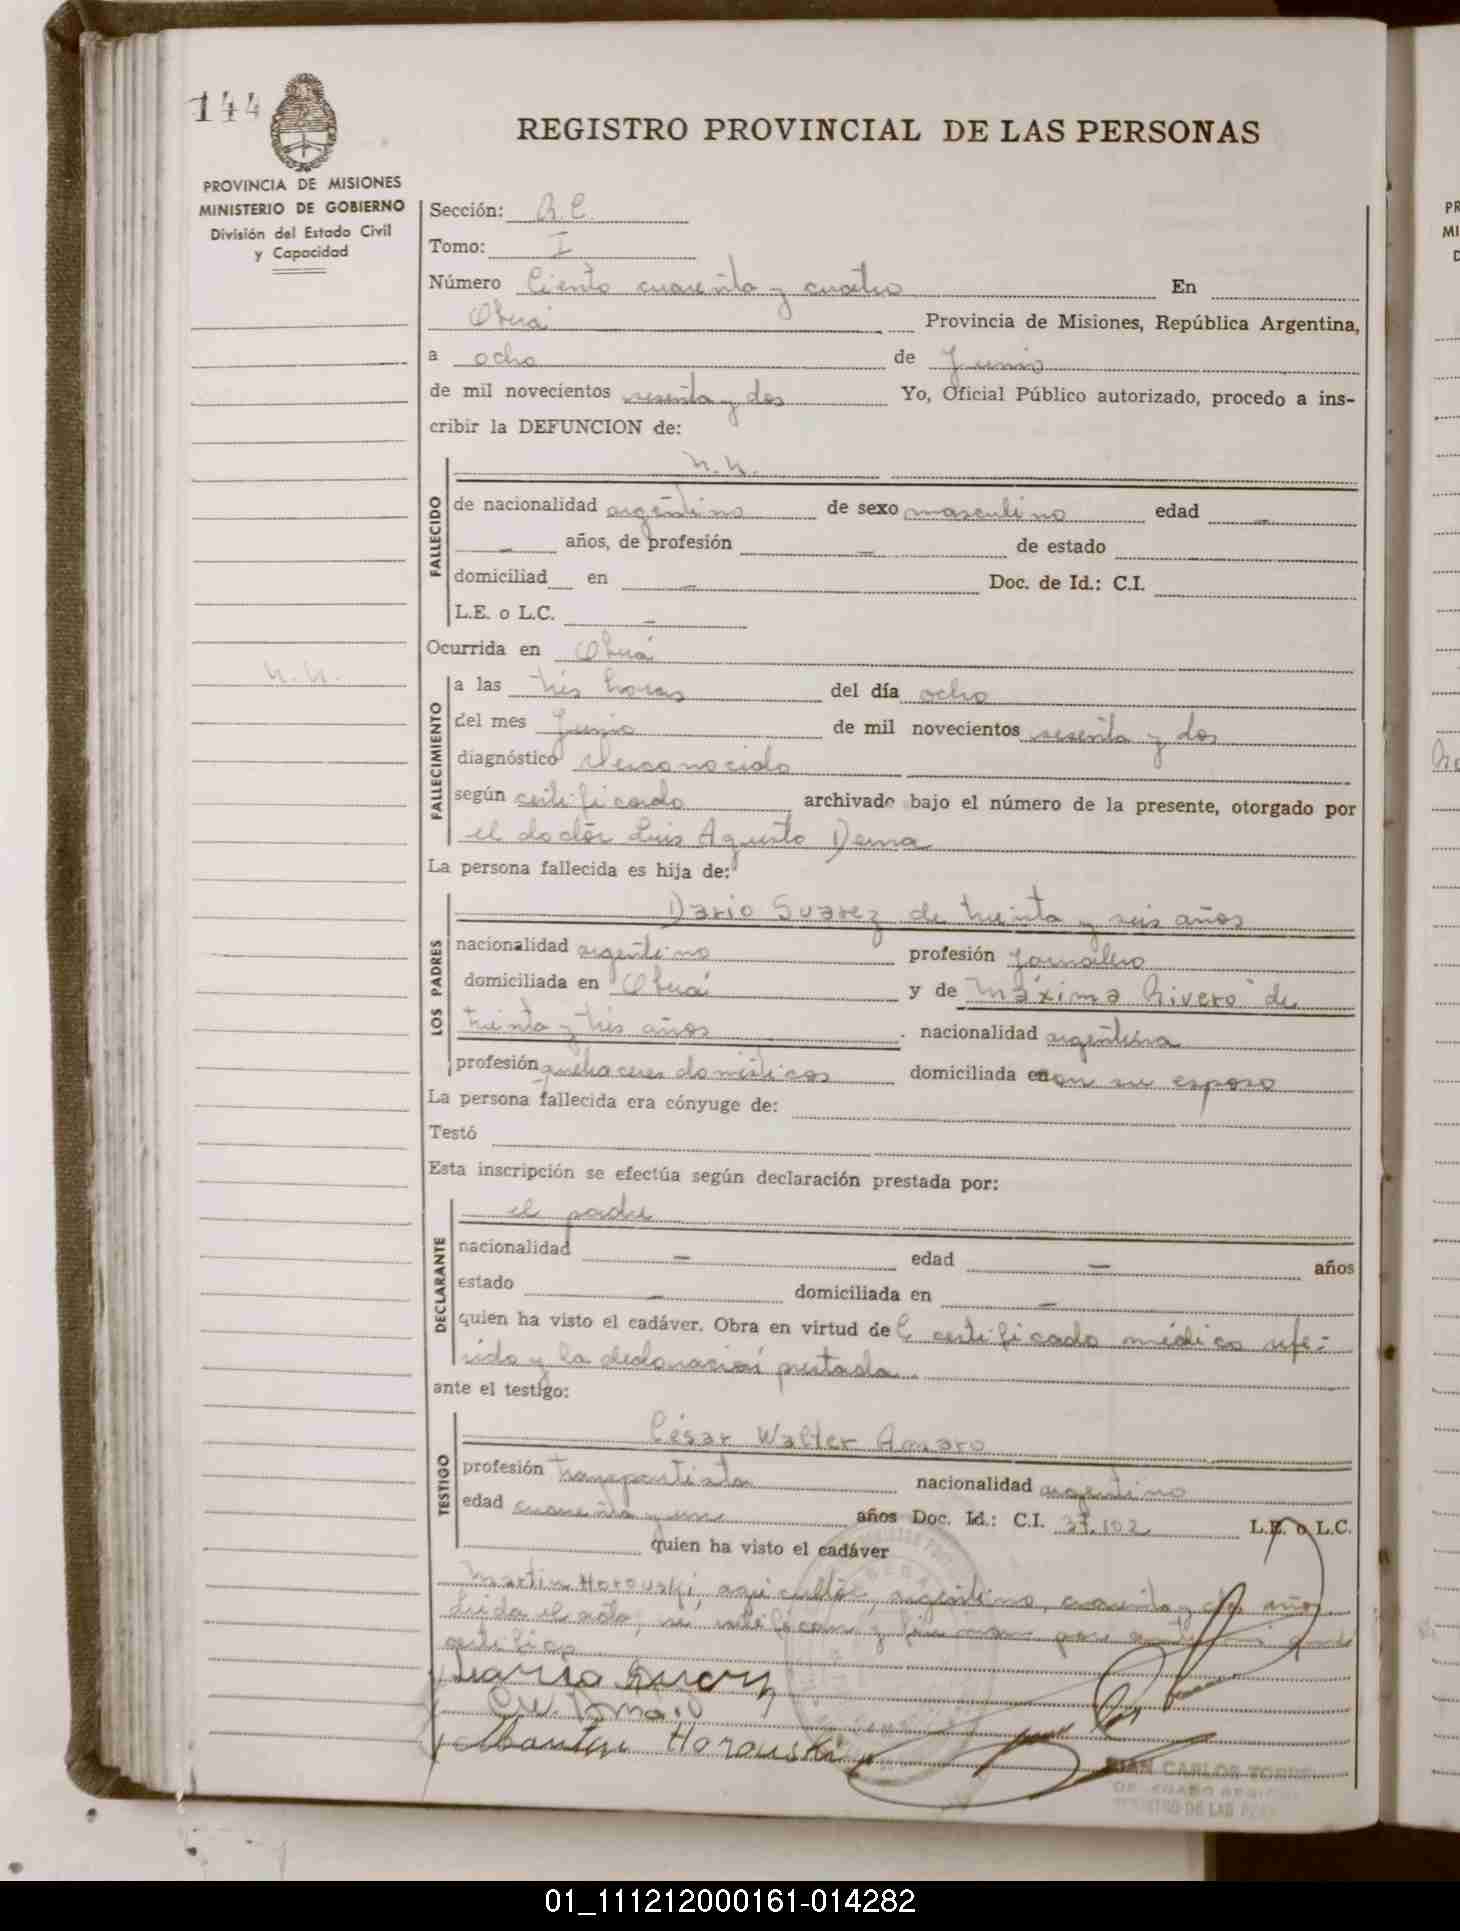 144
REGISTRO PROVINCIAL DE LAS PERSONAS
PROVINCIA DE MISIONES
MINISTERIO DE GOBIERNO
División del Estado Civil
y Capacidad
Sección: R.C.
Tomo: I
Número Ciento cuarenta y cuatro En
Oberá Provincia de Misiones, República Argentina,
a ocho de Junio
de mil novecientos sesenta y dos Yo, Oficial Público autorizado, procedo a ins-
cribir la DEFUNCION de:
N.N.
FALLECIDO
de nacionalidad argentino de sexo masculino edad —
— años, de profesión — de estado
domiciliad en — Doc. de Id.: C.I.
L.E. o L.C. —
Ocurrida en Oberá
N.N.
FALLECIMIENTO
a las tres horas del día ocho
del mes Junio de mil novecientos sesenta y dos
diagnóstico desconocido
según certificado archivado bajo el número de la presente, otorgado por
el doctor Luis Agusto Derna
La persona fallecida es hija de:
LOS PADRES
Dario Suarez de treinta y seis años
nacionalidad argentino profesión Jornalero
domiciliada en Oberá y de Máxima Rivero de
treinta y tres años . nacionalidad argentina
profesión quehaceres domésticos domiciliada en con su esposo
La persona fallecida era cónyuge de:
Testó
Esta inscripción se efectúa según declaración prestada por:
DECLARANTE
el padre
nacionalidad — edad — años
estado — domiciliada en —
quien ha visto el cadáver. Obra en virtud de l certificado médico refe-
rido y la declaración prestada.
ante el testigo:
TESTIGO
César Walter Amaro
profesión transportista nacionalidad argentino
edad cuarenta y un años Doc. Id.: C.I. 37.102 L.E. o L.C.
quien ha visto el cadáver
Martin Horouski, agricultor, argentino, cuarenta y dos años.
Leida el acta, se ratifican y firman por ante mi que
certifico
Martin Horouski
JUAN CARLOS TORRES
01_111212000161-014282